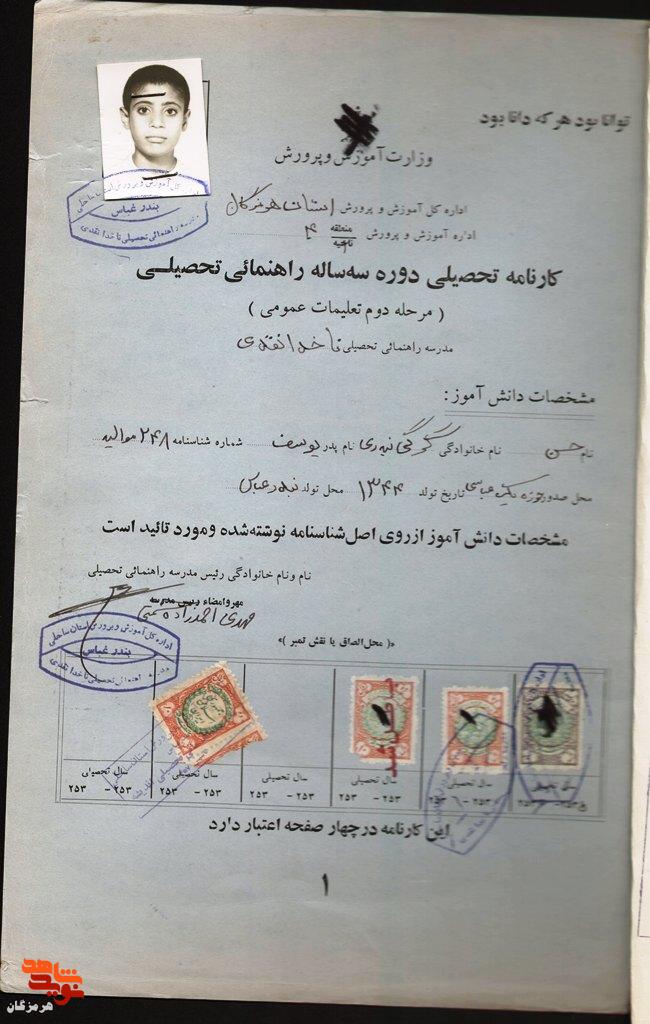 توانا بود هر که دانا بود
وزارت آموزش و پرورش
اداره کل آموزش و پرورش استان هرمزگان
اداره آموزش و پرورش منطقه ناحیه ۴
کارنامه تحصیلی دوره سه‌ساله راهنمائی تحصیلی
( مرحله دوم تعلیمات عمومی )
مدرسه راهنمائی تحصیلی ناخدا نقدی
مشخصات دانش آموز :
نام حسن نام خانوادگی نام پدر یوسف شماره شناسنامه ۲۴۸ موالید
محل صدور تاریخ تولد ۱۳۴۴ محل تولد بندرعباس
مشخصات دانش آموز ازروی اصل شناسنامه نوشته شده ومورد تائید است
نام ونام خانوادگی رئیس مدرسه راهنمائی تحصیلی
مهر وامضاء رئیس مدرسه
مهدی احمدزاده
اداره کل آموزش و پرورش استان ساحلی
بندر عباس
مدرسه راهنمائی تحصیلی ناخدا نقدی
«( محل الصاق یا نقش تمبر )»
سال تحصیلی سال تحصیلی سال تحصیلی سال تحصیلی سال تحصیلی سال تحصیلی
۲۵۳ - ۲۵۳ ۲۵۳ - ۲۵۳ ۲۵۳ - ۲۵۳ ۲۵۳ - ۲۵۳ ۲۵۳ - ۲۵۳
این کارنامه در چهار صفحه اعتبار دارد
۱
نوید شاهد
هرمزگان